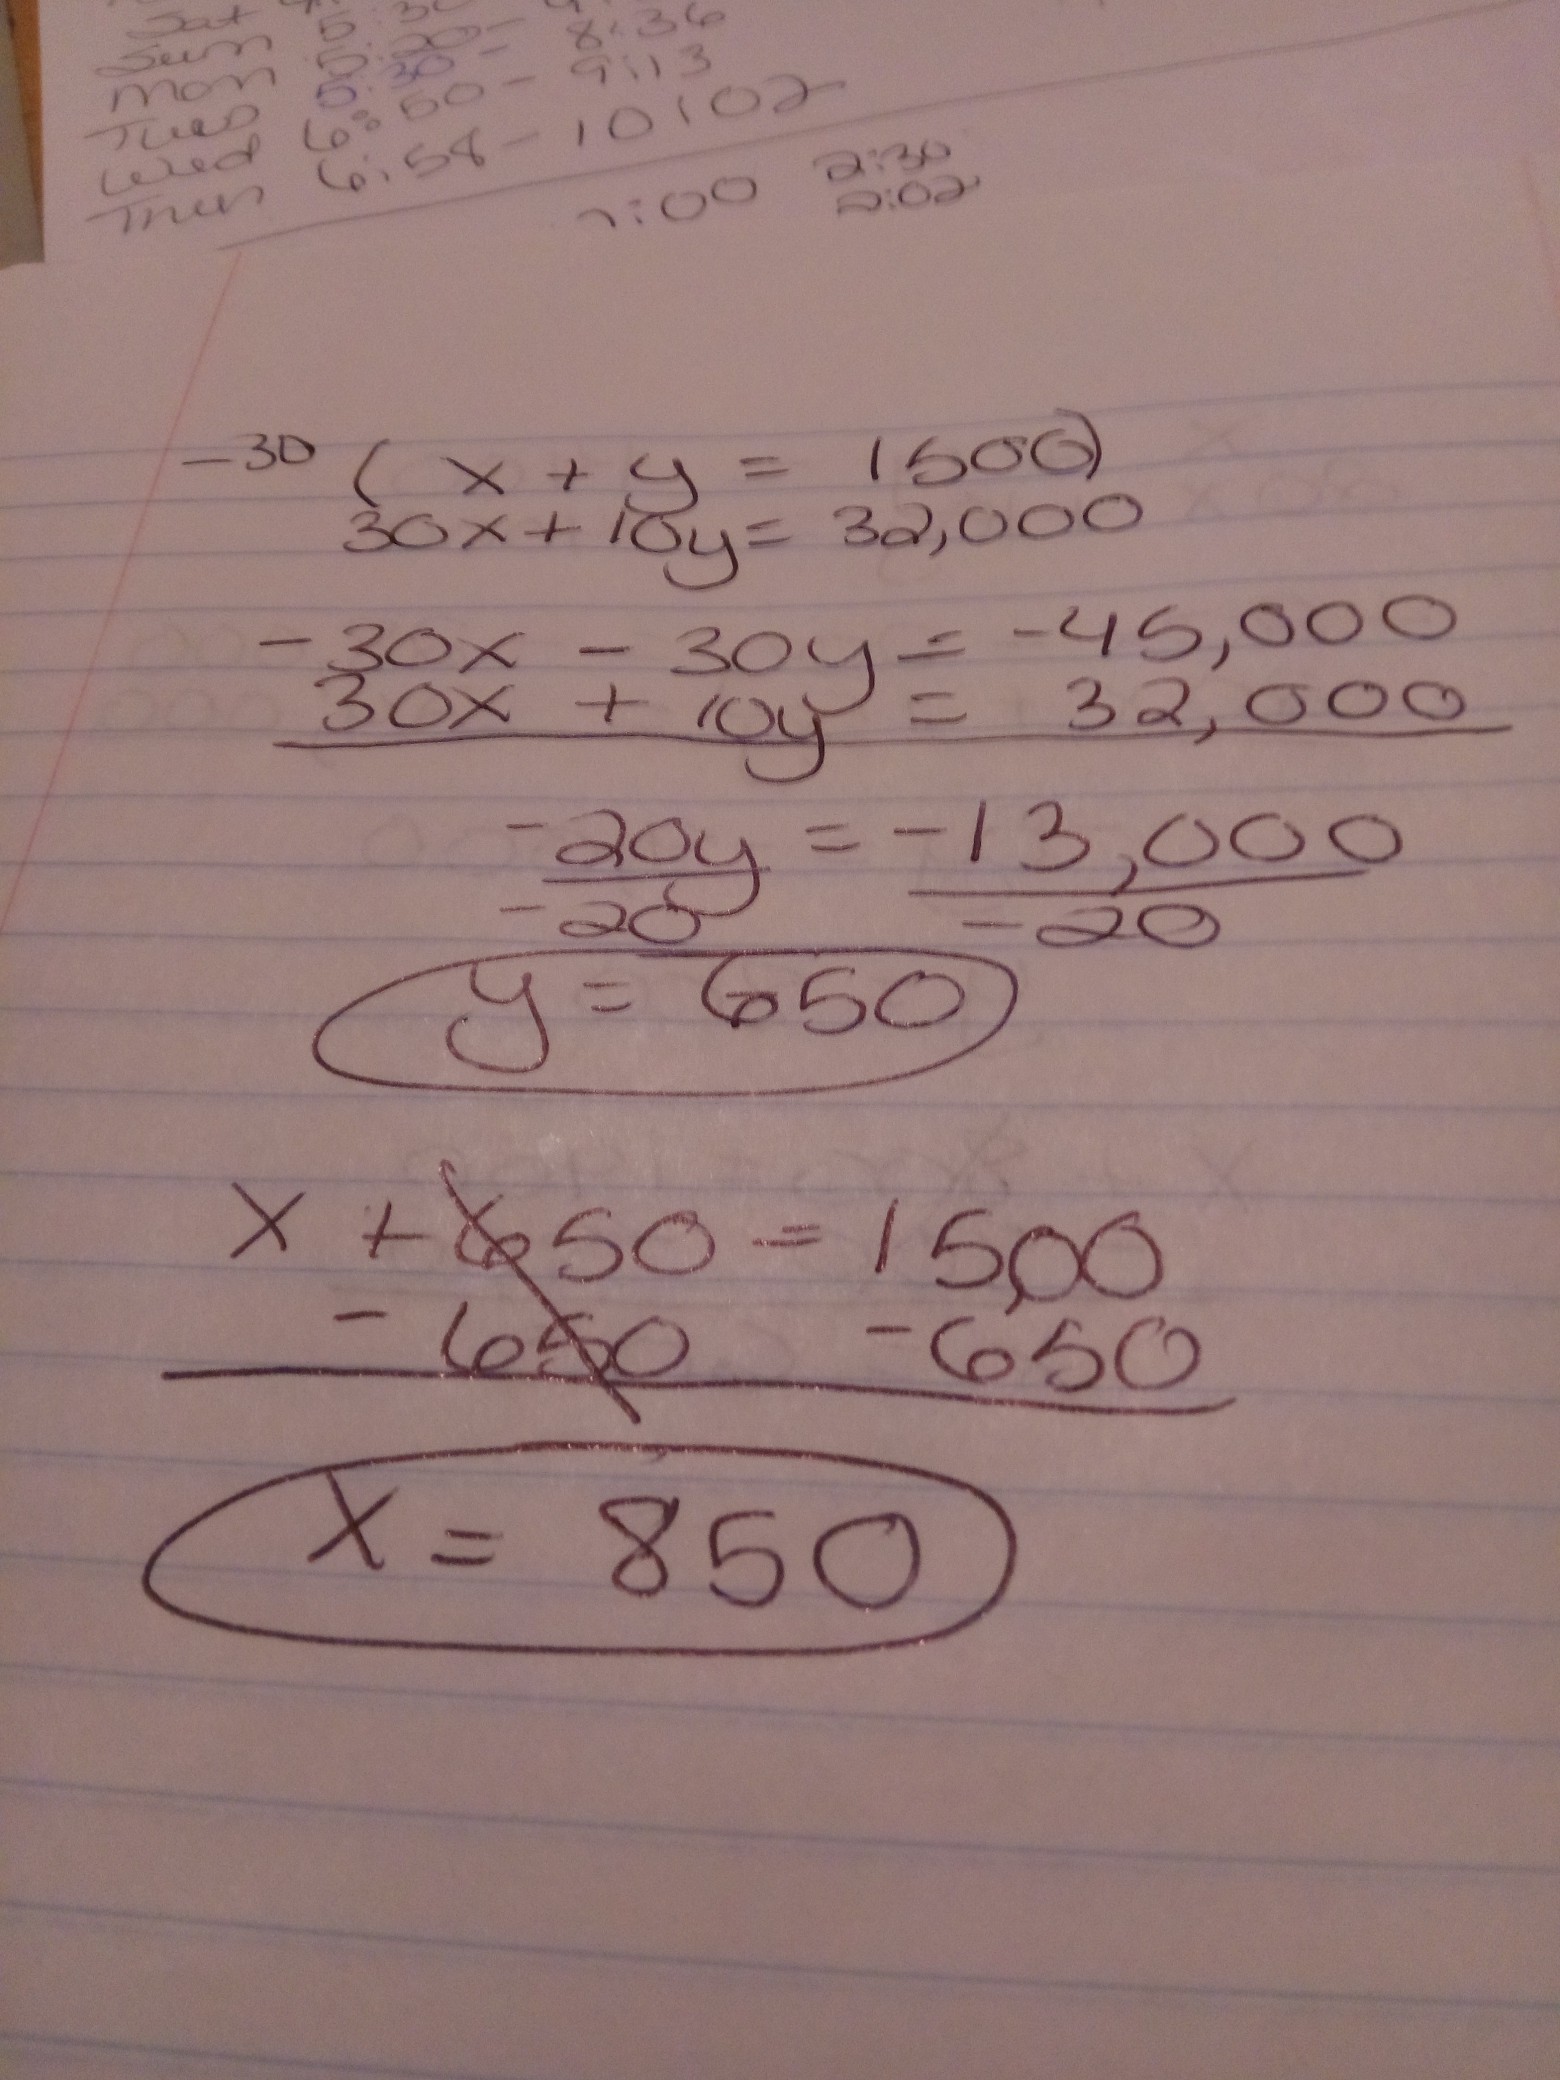 Sat 5:30
Sun 5:20 - 8:36
Mon 5:30 - 9:13
Tues 6:50 - 10:02
Wed 6:58
Thur
:00 2:30
2:02
-30 ( x + y = 1500)
30x + 10y = 32,000
-30x - 30y = -45,000
30x + 10y = 32,000
-20y = -13,000
-20 -20
y = 650
x + 650 = 1500
- 650 -650
x = 850